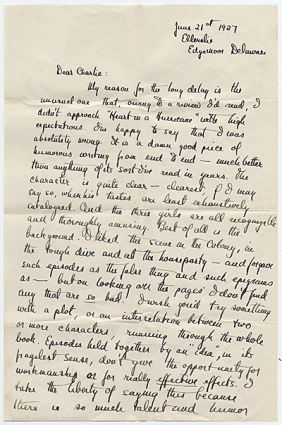 June 21st 1927
Ellerslie
Edgemoor Delaware
Dear Charlie:
My reason for the long delay is the
unusual one that, owing to a review I'd read, I
didn't approach "Heart in a Hurricane" with high
expectations. I'm happy to say that I was
absolutely wrong. It is a damn good piece of
humorous writing from end to end — much better
than anything of its sort I've read in years. The
character is quite clear — clearest, if I may
say so, when his tastes are least exhaustively
catalogued. And the three girls are all recognizable
and thoroughly amusing. Best of all is the
background. I liked the scene in the Colony, in
the tough dive and at the houseparty — and
such episodes as the false thing and such epigrams
as — ! but on looking over the pages I don't find
any that are so bad! I wish you'd try something
with a plot, or an interrelation between two
or more characters, running through the whole
book. Episodes held together by an "idea", in its
fragilest sense, don't give the opportunity for
workmanship or for really effective effects. I
take the liberty of saying this because
there is so much talent and humor